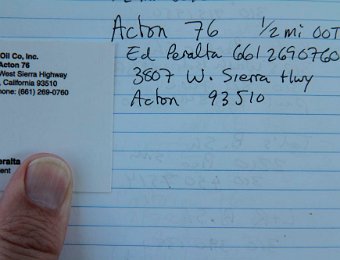 Acton 76 1/2 mi OOT
Ed Peralta 661 2690760
3807 W. Sierra Hwy
Acton 93510
Oil Co, Inc.
Acton 76
West Sierra Highway
, California 93510
hone: (661) 269-0760
eralta
ent